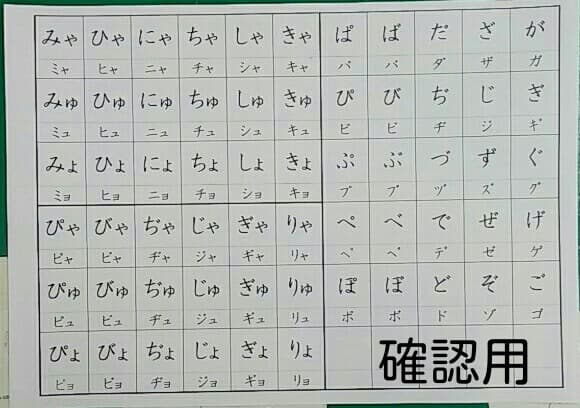 みゃ ひゃ にゃ ちゃ しゃ きゃ ぱ ば だ ざ が
ミャ ヒャ ニャ チャ シャ キャ パ バ ダ ザ ガ
みゅ ひゅ にゅ ちゅ しゅ きゅ ぴ び ぢ じ ぎ
ミュ ヒュ ニュ チュ シュ キュ ピ ビ ヂ ジ ギ
みょ ひょ にょ ちょ しょ きょ ぷ ぶ づ ず ぐ
ミョ ヒョ ニョ チョ ショ キョ プ ブ ヅ ズ グ
ぴゃ びゃ ぢゃ じゃ ぎゃ りゃ ぺ べ で ぜ げ
ピャ ビャ ヂャ ジャ ギャ リャ ペ ベ デ ゼ ゲ
ぴゅ びゅ ぢゅ じゅ ぎゅ りゅ ぽ ぼ ど ぞ ご
ピュ ビュ ヂュ ジュ ギュ リュ ポ ボ ド ゾ ゴ
ぴょ びょ ぢょ じょ ぎょ りょ
ピョ ビョ ヂョ ジョ ギョ リョ
確認用